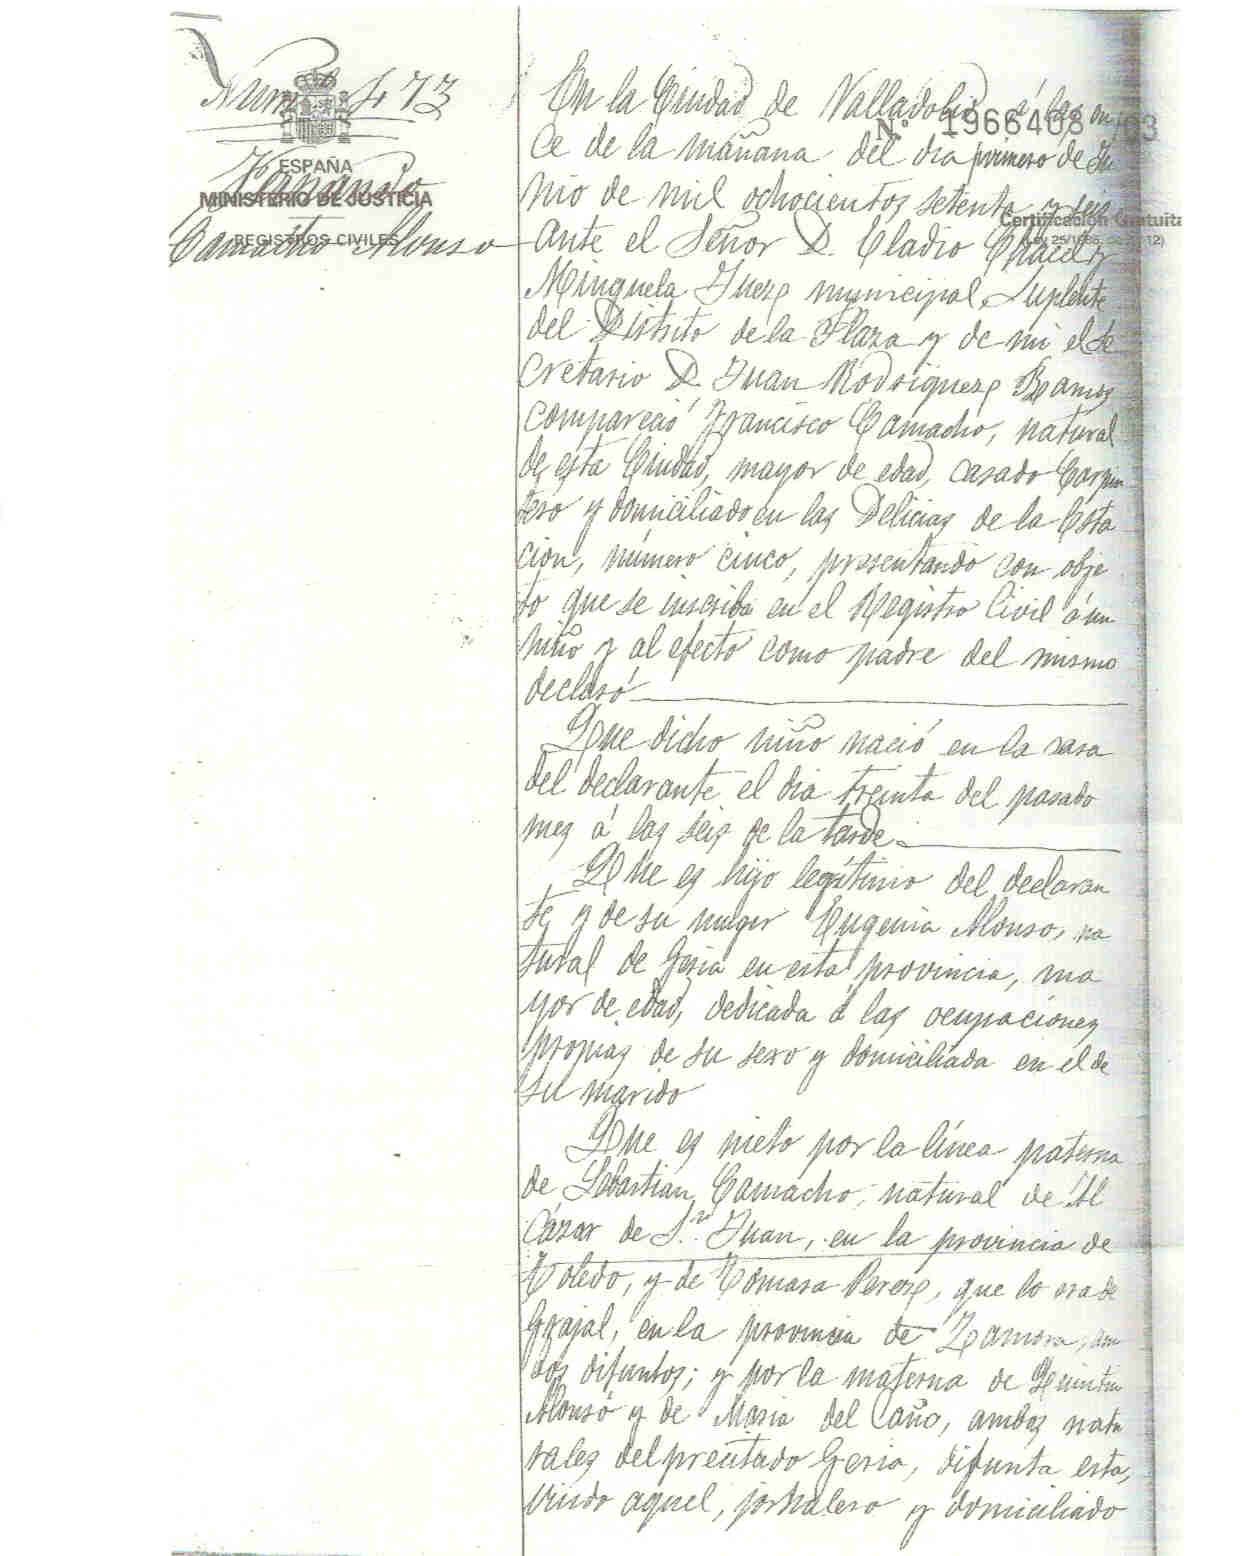 Núm. 473
ESPAÑA
MINISTERIO DE JUSTICIA
REGISTROS CIVILES
Camacho Alonso
Nº 1966408 /03
Certificación Gratuita
En la Ciudad de Valladolid á las on
ce de la mañana del dia primero de Ju
nio de mil ochocientos setenta y seis
ante el Señor D. Eladio
Minguela Juez municipal Suplente
del Distrito de la Plaza y de mi el Se
cretario D. Juan Rodriguez Ramos
compareció Francisco Camacho, natural
de esta Ciudad, mayor de edad, casado Carpin
tero y domiciliado en las Delicias de la Esta
cion, número cinco, presentando con obje
to que se inscriba en el Registro Civil á un
niño y al efecto como padre del mismo
declaró
Que dicho niño nació en la casa
del declarante el dia treinta del pasado
mes á las seis de la tarde.
Que es hijo legítimo del declaran
te y de su muger Eugenia Alonso, na
tural de Geria en esta provincia, ma
yor de edad, dedicada á las ocupaciones
propias de su sexo y domiciliada en el de
su marido
Que es nieto por la línea paterna
de Sebastian Camacho, natural de Al
cázar de S.n Juan, en la provincia de
Toledo, y de Tomasa Perez, que lo era de
Grajal, en la provincia de Zamora, am
bos difuntos; y por la materna de Quintin
Alonso y de Maria del Caño, ambos natu
rales del precitado Geria, difunta esta,
viudo aquel, jornalero y domiciliado